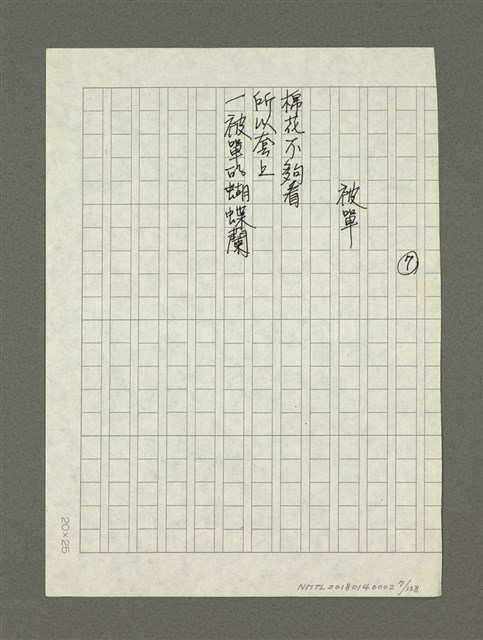 ⑦
被單
棉花不夠看
所以套上
一被單的蝴蝶蘭
20×25
NMTL20180140002 7/138